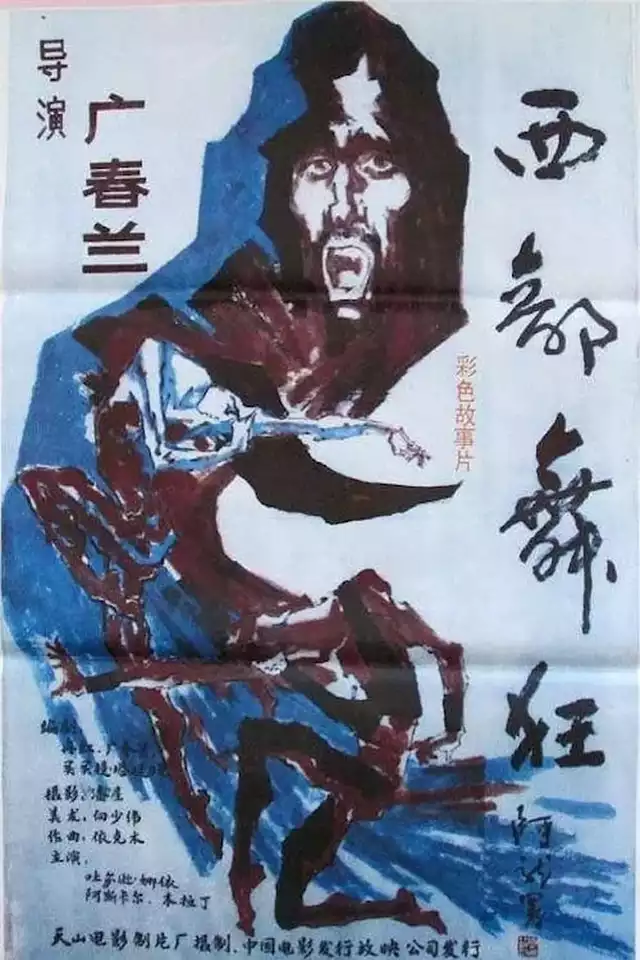 导演
广春兰
西部舞狂
彩色故事片
编剧:
广春兰
摄影:
美术:何少伟
作曲:依克木
主演:
吐尔逊娜依
阿斯卡尔、木拉丁
天山电影制片厂摄制、中国电影发行放映公司发行